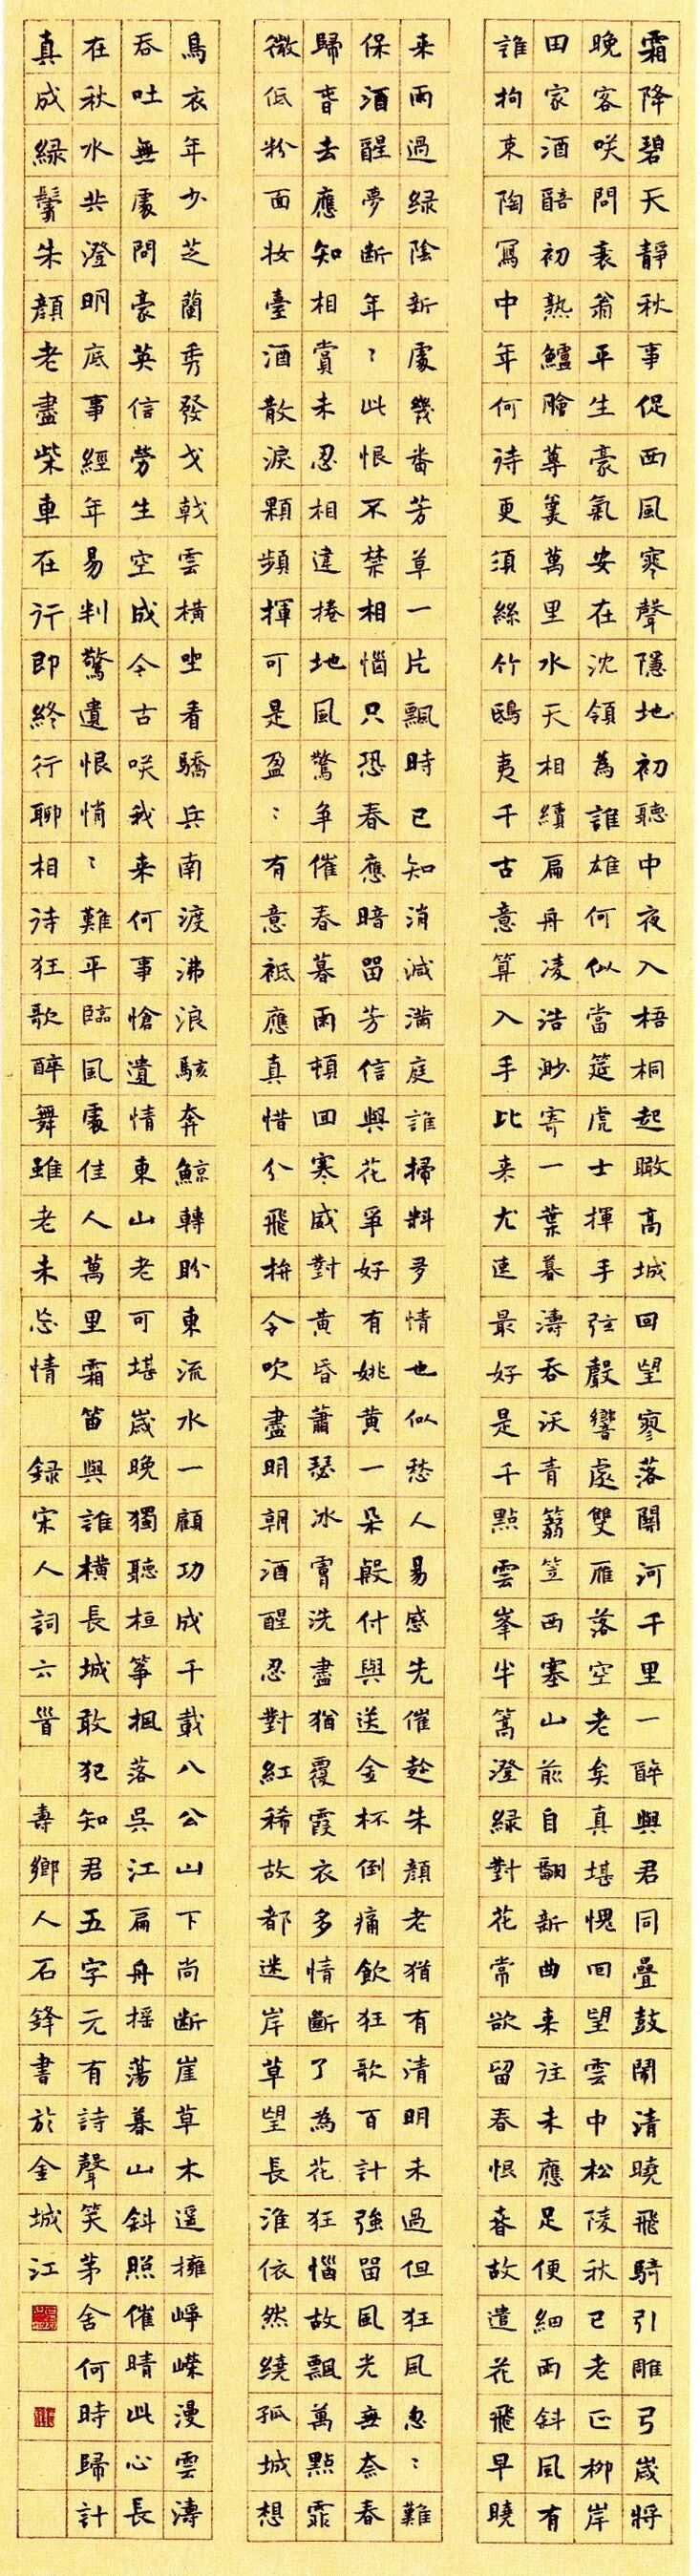 霜降碧天靜秋事促西風寒聲隱地初聽中夜入梧桐起瞰高城回望寥落關河千里一醉與君同疊鼓鬧清曉飛騎引雕弓歲將
晚客咲問衰翁平生豪氣安在沈領為誰雄何似當筵虎士揮手弦聲響處雙雁落空老矣真堪愧回望雲中松陵秋已老正柳岸
田家酒醅初熟鱸膾蓴羹萬里水天相續扁舟凌浩渺寄一葉暮濤吞沃青篛笠西塞山前自翻新曲来往未應足便細雨斜風有
誰拘束陶寫中年何待更須絲竹鴟夷千古意算入手比来尤速最好是千點雲峯半篙澄綠對花常欲留春恨春故遣花飛早曉
来雨過綠陰新處幾番芳草一片飄時已知消減滿庭誰掃料多情也似愁人易感先催趁朱顏老猶有清明未過但狂風怱〻難
保酒醒夢斷年〻此恨不禁相惱只恐春應暗留芳信與花爭好有姚黃一朵殷付與送金杯倒痛飲狂歌百計強留風光無奈春
歸春去應知相賞未忍相違捲地風驚爭催春暮雨頓回寒威對黃昏蕭瑟冰膚洗盡猶覆霞衣多情斷了為花狂惱故飄萬點霏
微低粉面妝臺酒散淚顆頻揮可是盈〻有意衹應真惜分飛拚令吹盡明朝酒醒忍對紅稀故都迷岸草望長淮依然繞孤城想
烏衣年少芝蘭秀發戈戟雲橫坐看驕兵南渡沸浪駭奔鯨轉盼東流水一顧功成千載八公山下尚斷崖草木遥擁崢嶸漫雲濤
吞吐無處問豪英信勞生空成今古咲我来何事愴遺情東山老可堪歲晚獨聽桓箏楓落吳江扁舟摇蕩暮山斜照催晴此心長
在秋水共澄明底事經年易判驚遺恨悄〻難平臨風處佳人萬里霜笛與誰橫長城敢犯知君五字元有詩聲笑茅舍何時歸計
真成綠鬢朱顏老盡柴車在行即終行聊相待狂歌醉舞雖老未忘情 錄宋人詞六首 壽鄉人石鋒書於金城江